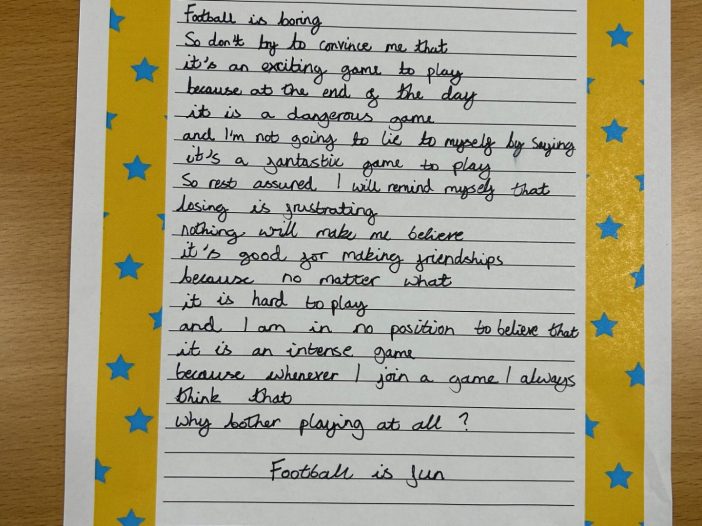 Football is boring
So don't try to convince me that
it's an exciting game to play
because at the end of the day
it is a dangerous game
and I'm not going to lie to myself by saying
it's a fantastic game to play
So rest assured I will remind myself that
losing is frustrating
nothing will make me believe
it's good for making friendships
because no matter what
it is hard to play
and I am in no position to believe that
it is an intense game
because whenever I join a game I always
think that
why bother playing at all ?
Football is fun